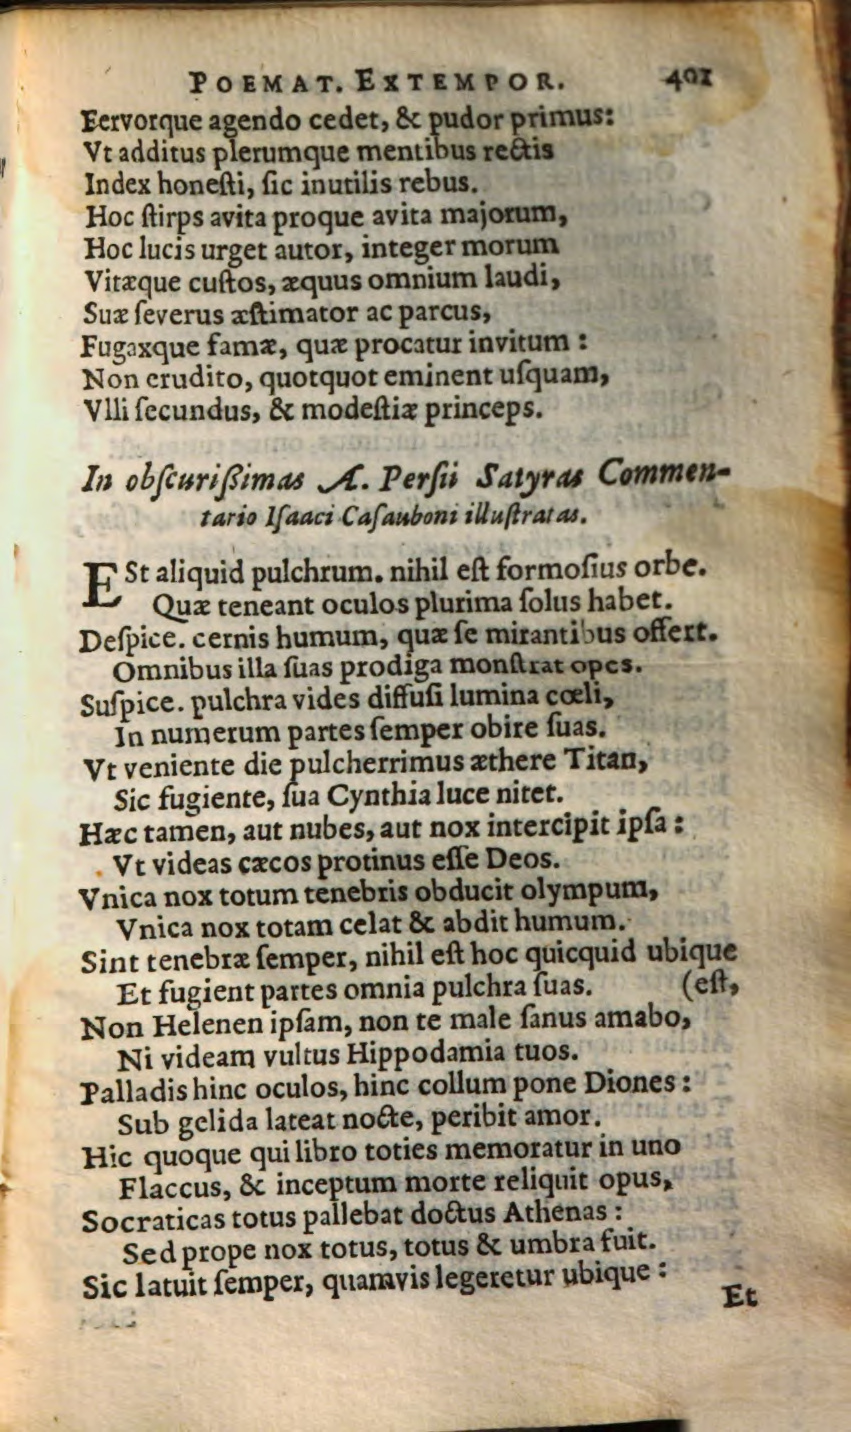 POEMAT. EXTEMPOR. 401
Fervorque agendo cedet, & pudor primus:
Vt additus plerumque mentibus rectis
Index honeſti, ſic inutilis rebus.
Hoc ſtirps avita proque avita majorum,
Hoc lucis urget autor, integer morum
Vitæque cuſtos, æquus omnium laudi,
Suæ ſeverus æſtimator ac parcus,
Fugaxque famæ, quæ procatur invitum :
Non erudito, quotquot eminent uſquam,
Vlli ſecundus, & modeſtiæ princeps.
In obſcurißimas A. Perſii Satyras Commen-
tario Iſaaci Caſauboni illuſtratas.
ESt aliquid pulchrum. nihil eſt formoſius orbe.
Quæ teneant oculos plurima ſolus habet.
Deſpice. cernis humum, quæ ſe mirantibus offert.
Omnibus illa ſuas prodiga monſtrat opes.
Suſpice. pulchra vides diffuſi lumina cœli,
In numerum partes ſemper obire ſuas.
Vt veniente die pulcherrimus æthere Titan,
Sic fugiente, ſua Cynthia luce nitet.
Hæc tamen, aut nubes, aut nox intercipit ipſa :
Vt videas cæcos protinus eſſe Deos.
Vnica nox totum tenebris obducit olympum,
Vnica nox totam celat & abdit humum.
Sint tenebræ ſemper, nihil eſt hoc quicquid ubique
Et fugient partes omnia pulchra ſuas. (eſt,
Non Helenen ipſam, non te male ſanus amabo,
Ni videam vultus Hippodamia tuos.
Palladis hinc oculos, hinc collum pone Diones :
Sub gelida lateat nocte, peribit amor.
Hic quoque qui libro toties memoratur in uno
Flaccus, & inceptum morte reliquit opus,
Socraticas totus pallebat doctus Athenas :
Sed prope nox totus, totus & umbra fuit.
Sic latuit ſemper, quamvis legeretur ubique :
Et